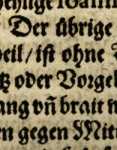 Der übrige
eil / ist ohne
tz oder Vorgel
ang vñ brait
n gegen Mitt